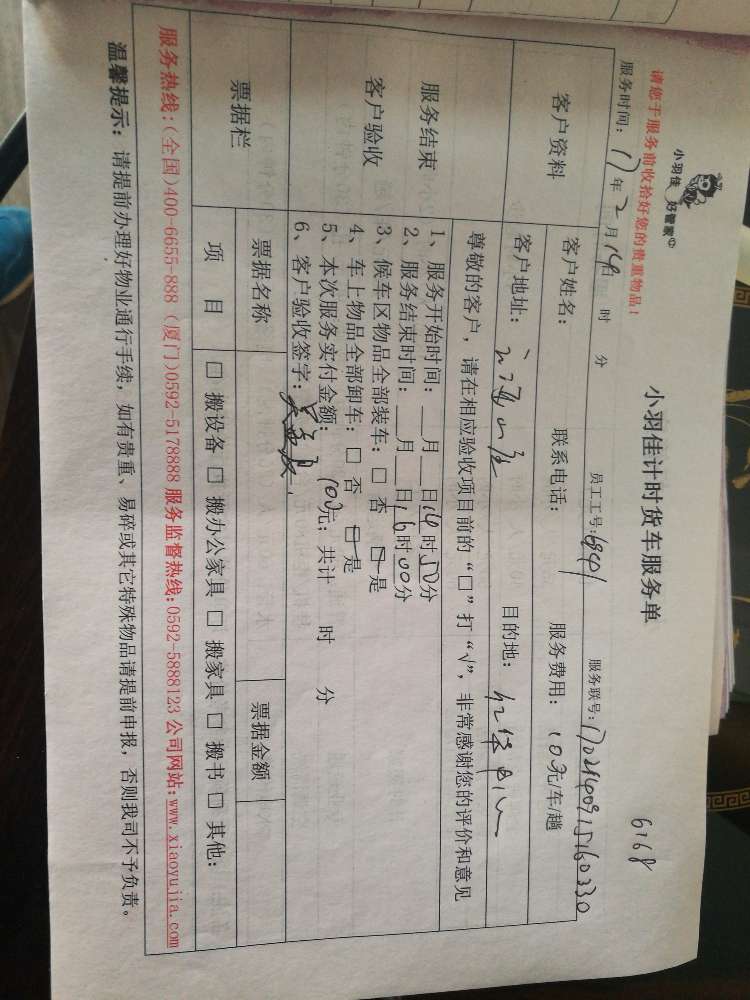 小羽佳 好管家
小羽佳计时货车服务单
6168
请您于服务前收拾好您的贵重物品！
服务时间：17年2月14日 时 分 员工工号：6941 服务联号：1702140915160330
客户资料
客户姓名： 联系电话： 服务费用：10元/车/趟
客户地址： 目的地：
尊敬的客户，请在相应验收项目前的“□”打“√”，非常感谢您的评价和意见
服务结束
客户验收
1、服务开始时间：__月__日14时50分
2、服务结束时间：__月__日16时00分
3、候车区物品全部装车：□ 否 □ 是
4、车上物品全部卸车：□ 否 □ 是
5、本次服务实付金额：100元；共计 时 分
6、客户验收签字：
票据栏
票据名称 票据金额
项 目 □ 搬设备 □ 搬办公家具 □ 搬家具 □ 搬书 □ 其他：
服务热线：(全国)400-6655-888 (厦门)0592-5178888 服务监督热线：0592-5888123 公司网站：www.xiaoyujia.com
温馨提示：请提前办理好物业通行手续，如有贵重、易碎或其它特殊物品请提前申报，否则我司不予负责。